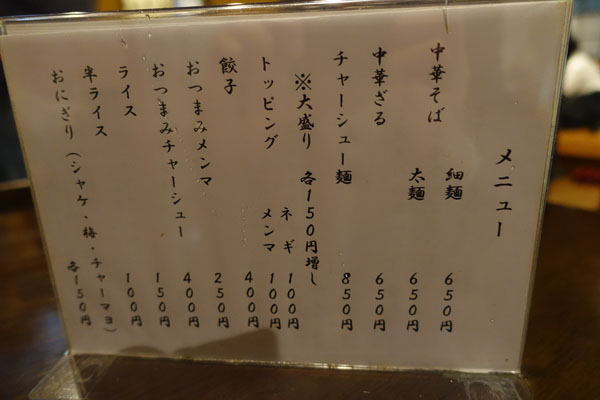 メニュー
中華そば 細麺 650円
太麺 650円
中華ざる 650円
チャーシュー麺 850円
※大盛り 各150円増し
トッピング ネギ 100円
メンマ 100円
餃子 400円
おつまみメンマ 250円
おつまみチャーシュー 400円
ライス 150円
半ライス 100円
おにぎり(シャケ・梅・チャーマヨ) 各150円